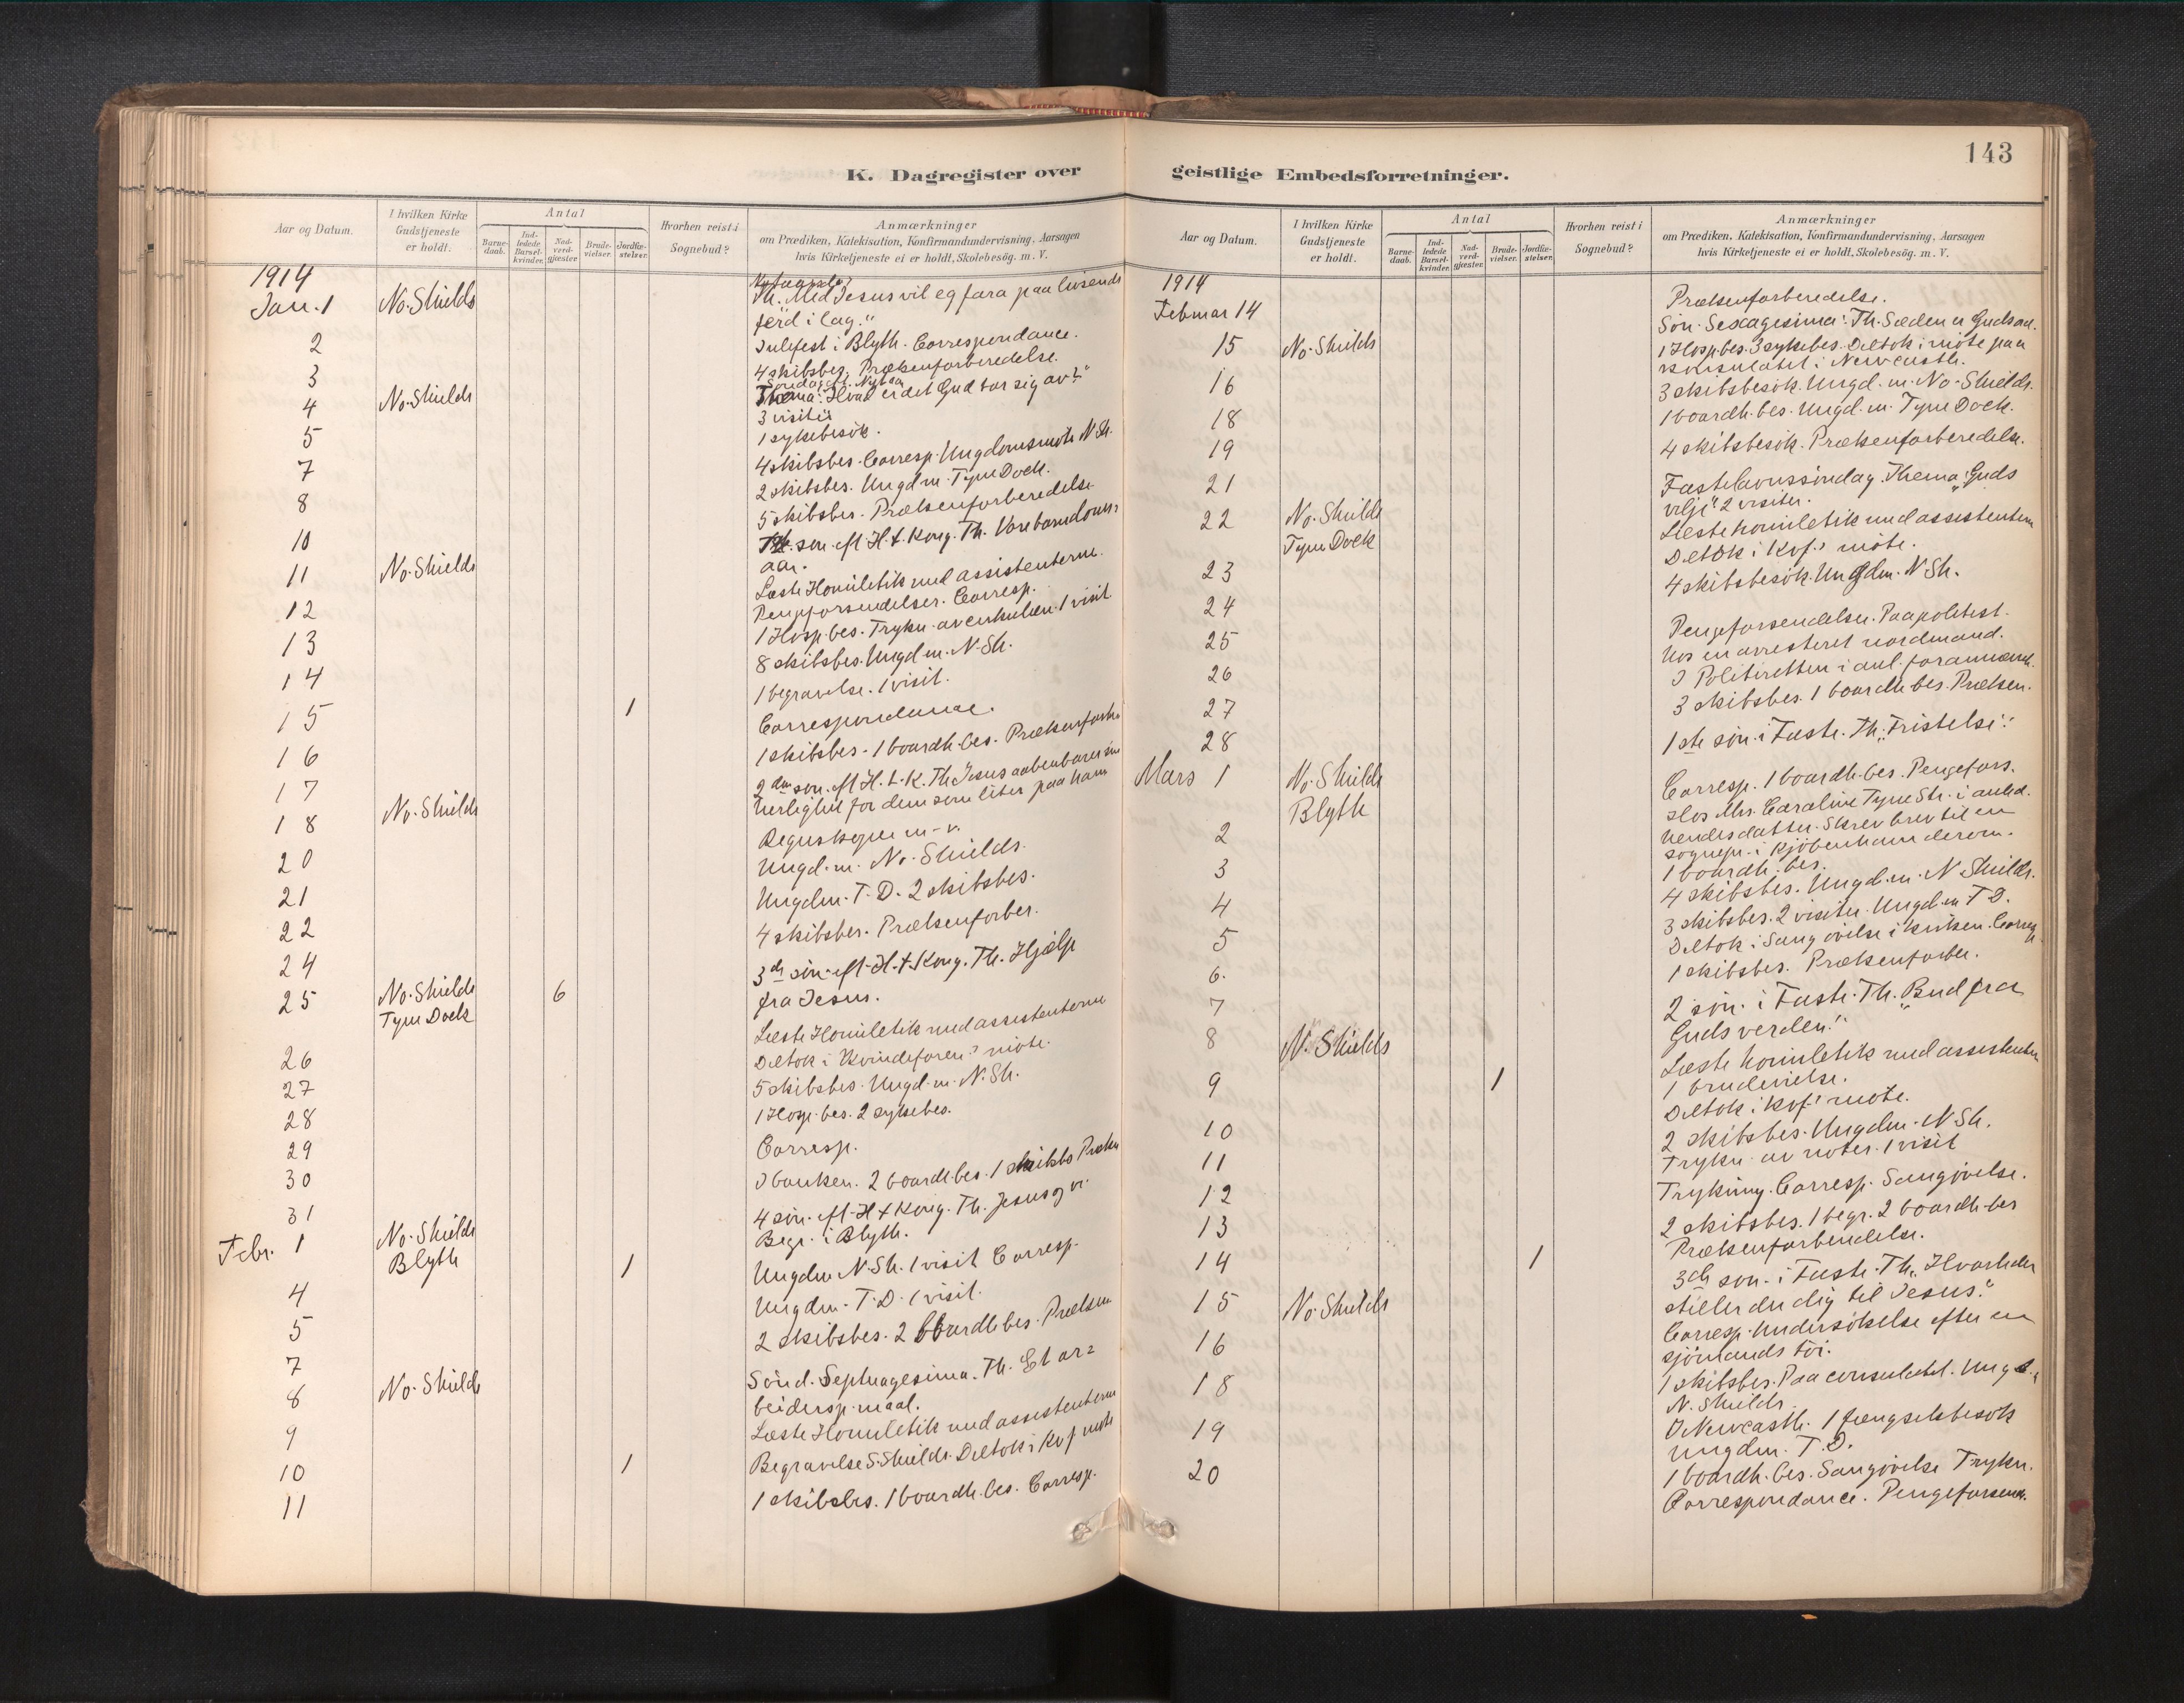 143
K. Dagregister over geistlige Embedsforretninger.
Aar og Datum.
I hvilken Kirke Gudstjeneste er holdt.
Antal
Barne-daab.
Ind-ledede Barsel-kvinder.
Nad-verd-gjæster.
Brude-vielser.
Jordfæ-stelser.
Hvorhen reist i Sognebud?
Anmærkninger
om Prædiken, Katekisation, Konfirmandundervisning, Aarsagen
hvis Kirketjeneste ei er holdt, Skolebesög. m. V.
1914
Jan. 1 No. Shields Th. Med Jesus vil eg fara paa livsens
ferd i lag."
2 Julefest i Blyth. Correspondance.
3 4 skibsbes. Prækenforberedelse.
Søndag eft. Nytaar
4 No. Shields Thema: Hvad er det Gud tar sig av?"
3 visitter
5 1 sykebesök.
7 4 skibsbes. Corresp. Ungdomsmöte N.Sh.
8 2 skibsbes. Ungd m. Tyne Dock.
10 5 skibsbes. Prækenforberedelse
11 No. Shields 1ste sön. eft H. 3 Kong. Th. Vore barndoms-
aar.
12 Læste Homiletik med assistenterne.
Pengeforsendelser. Corresp.
13 1 Hosp. bes. Trykn. av cirkulær. 1 visit
14 8 skibsbes. Ungd. m. N. Sh.
15 1 1 begravelse. 1 visit.
16 Correspondance.
17 1 skibsbes. 1 boardh. bes. Prækenforbe
18 No. Shields 2den sön. eft H. 3. K. Th Jesus aabenbarer sin
herlighet for dem som liter paa ham
20 Regnskaper m. v.
21 Ungd. m. No. Shields.
22 Ungdm. T. D. 2 skibsbes.
24 4 skibsbes. Prækenforber.
25 No. Shields 6 3de sön. eft. H. 3. Kong. Th. Hjælp
Tyne Dock fra Jesus.
26 Læste Homiletik med assistenterne
Deltok i Kvindeforen.s möte.
27 5 skibsbes. Ungd. m. N. Sh.
28 1 Hosp. bes. 2 sykebes.
29 Corresp.
30 I banken. 2 boardh. bes. 1 skibsbes Præken
31
Febr. 1 No. Shields 4 sön. eft. H 3 Kong. Th. Jesus og vi.
Blyth 1 Begr. i Blyth.
4 Ungdm N. Sh. 1 visit Corresp.
5 Ungdm. T. D. 1 visit.
7 2 skibsbes. 2 boardh bes. Præken
8 No. Shields Sönd. Septuagesima. Th. Et ar-
beidersp.maal.
9 Læste Homiletik med assistenterne
10 1 Begravelse S. Shields. Deltok i Kvf möte
11 1 skibsbes. 1 boardh. bes. Corresp.
Aar og Datum.
I hvilken Kirke Gudstjeneste er holdt.
Antal
Barne-daab.
Ind-ledede Barsel-kvinder.
Nad-verd-gjæster.
Brude-vielser.
Jordfæ-stelser.
Hvorhen reist i Sognebud?
Anmærkninger
om Prædiken, Katekisation, Konfirmandundervisning, Aarsagen
hvis Kirketjeneste ei er holdt, Skolebesög. m. V.
1914
Februar 14 Prækenforberedelse.
15 No. Shields Sön. Sexagesima: Th. Sæden er Guds ord.
16 1 Hosp. bes. 3 sykebes. Deltok i möte paa
konsulatet i Newcastle.
18 3 skibsbesök. Ungd. m. No. Shields.
19 1 boardh. bes. Ungd. m. Tyne Dock.
21 4 skibsbesök. Prækenforberedelse.
22 No. Shields Fastelavnssöndag. Thema „Guds
Tyne Dock vilje" 2 visiter.
23 Læste homiletik med assistentern
24 Deltok i Kvf.s möte.
25 4 skibsbesök. Ungdm. N Sh.
26 Pengeforsendelser. Paa politist.
hos en arresteret nordmand.
27 I Politiretten i anl.
28 3 skibsbes. 1 boardh bes. Præken.
Mars 1 No. Shields 1ste sön. i Faste. Th. „Fristelse".
Blyth
2 Corresp. 1 boardh. bes. Pengefors.
Hos Mrs. Caroline Tyne Str. i anled.
hendes datter. Skrev brev til en
sognepr. i Kjöbenhavn derom.
3 1 boardh. bes.
4 4 skibsbes. Ungd. m. N Shields.
5 3 skibsbes. 2 visiter. Ungd. m T D.
6. Deltok i Sangövelse i kirken. Corresp
7 1 skibsbes. Prækenforber.
8 N. Shields 2 sön. i Faste. Th. „Bud fra
Guds verden".
9 1 Læste homiletik med assistenter
1 brudevielse.
10 Deltok i Kvf.s möte.
11 2 skibsbes. Ungdm. N Sh.
12 Trykn. av noter. 1 visit
13 Trykning. Corresp. Sangövelse.
14 1 2 skibsbes. 1 begr. 2 boardh. bes
Prækenforberedelse.
15 No. Shields 3de sön. i Faste. Th. „Hvorledes
stiller du dig til Jesus."
16 Corresp. Undersökelse efter en
sjömands töi.
18 1 skibsbes. Paa consulatet. Ungd.
N. Shields.
19 I Newcastle. 1 fængselsbesök
Ungdm. T. D.
20 1 boardh. bes. Sangövelse Trykn.
Correspondance. Pengeforsend.